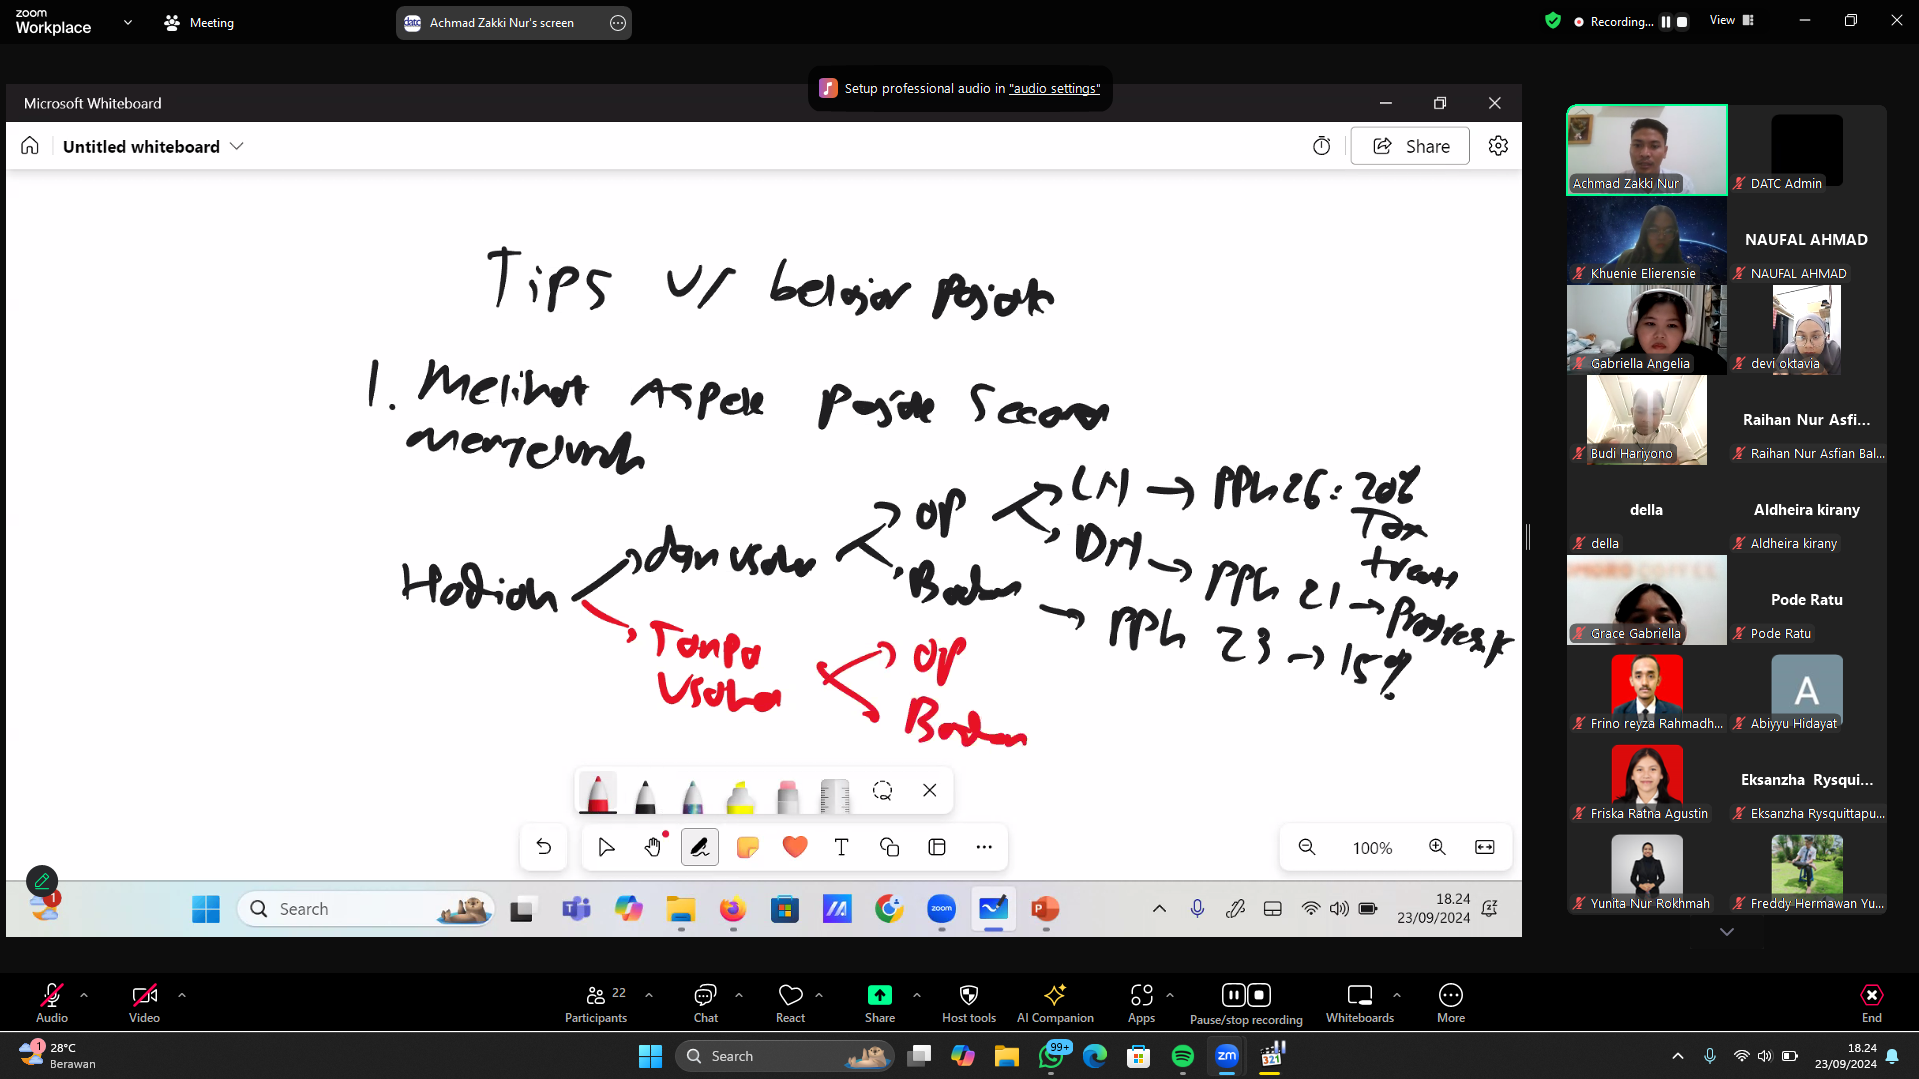 zoom
Workplace
Meeting
datc Achmad Zakki Nur's screen
Recording...
View
Setup professional audio in "audio settings"
Microsoft Whiteboard
Untitled whiteboard
Share
Tips U/ belajar Pajak
1. Melihat Aspek Pajak Secara
menyeluruh
Hadiah
dgn usaha
OP
LN → PPh 26 : 20%
Tax
treaty
DN → PPh 21 → Progresif
Badan → PPh 23 → 15%
Tanpa
Usaha
OP
Badan
100%
1
Search
zoom
18.24
23/09/2024
Achmad Zakki Nur
DATC Admin
Khuenie Elierensie
NAUFAL AHMAD
NAUFAL AHMAD
Gabriella Angelia
devi oktavia
Budi Hariyono
Raihan Nur Asfi...
Raihan Nur Asfian Bal...
della
della
Aldheira kirany
Aldheira kirany
Grace Gabriella
Pode Ratu
Pode Ratu
Frino reyza Rahmadh...
A
Abiyyu Hidayat
Friska Ratna Agustin
Eksanzha Rysqui...
Eksanzha Rysquittapu...
Yunita Nur Rokhmah
Freddy Hermawan Yu...
Audio
Video
22
Participants
Chat
React
Share
Host tools
AI Companion
Apps
Pause/stop recording
Whiteboards
More
End
1
28°C
Berawan
Search
99+
zm
321
18.24
23/09/2024